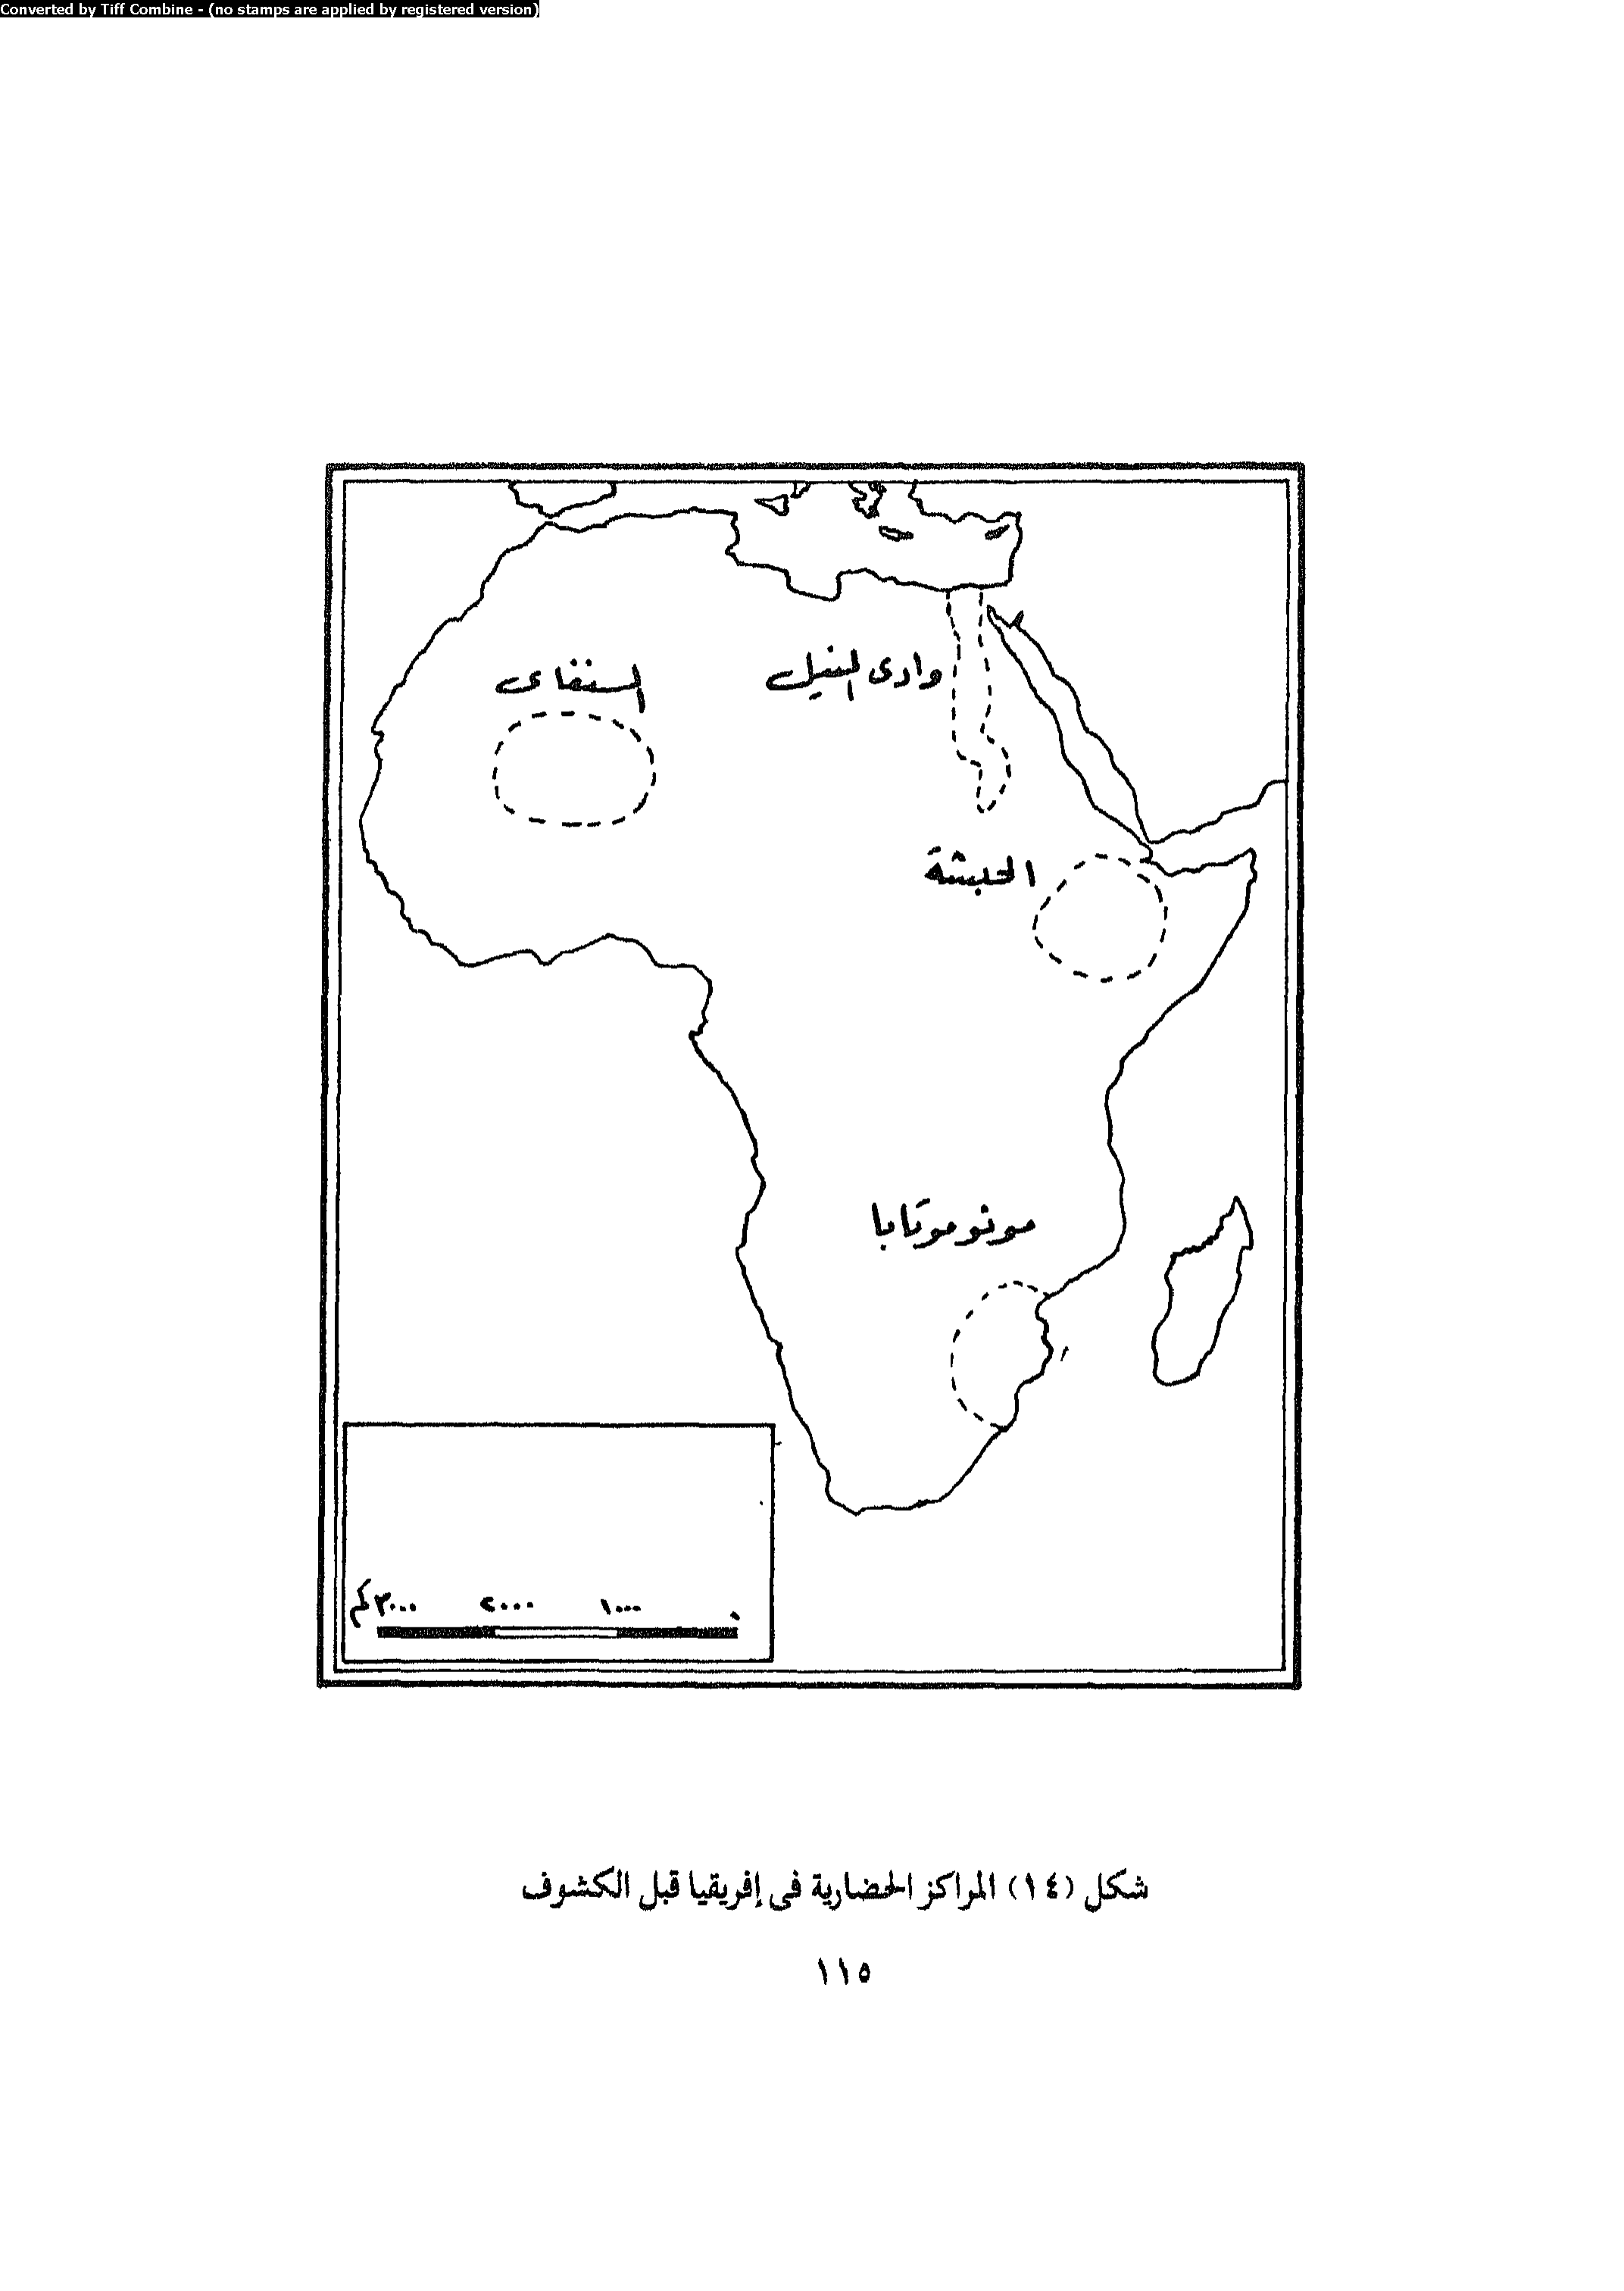 Converted by Tiff Combine - (no stamps are applied by registered version)
السنغاى
وادى النيل
الحبشة
مونوموتابا
٠ ١٠٠٠ ٢٠٠٠ ٣٠٠٠ كم
شكل (١٤) المراكز الحضارية فى إفريقيا قبل الكشوف
١١٥